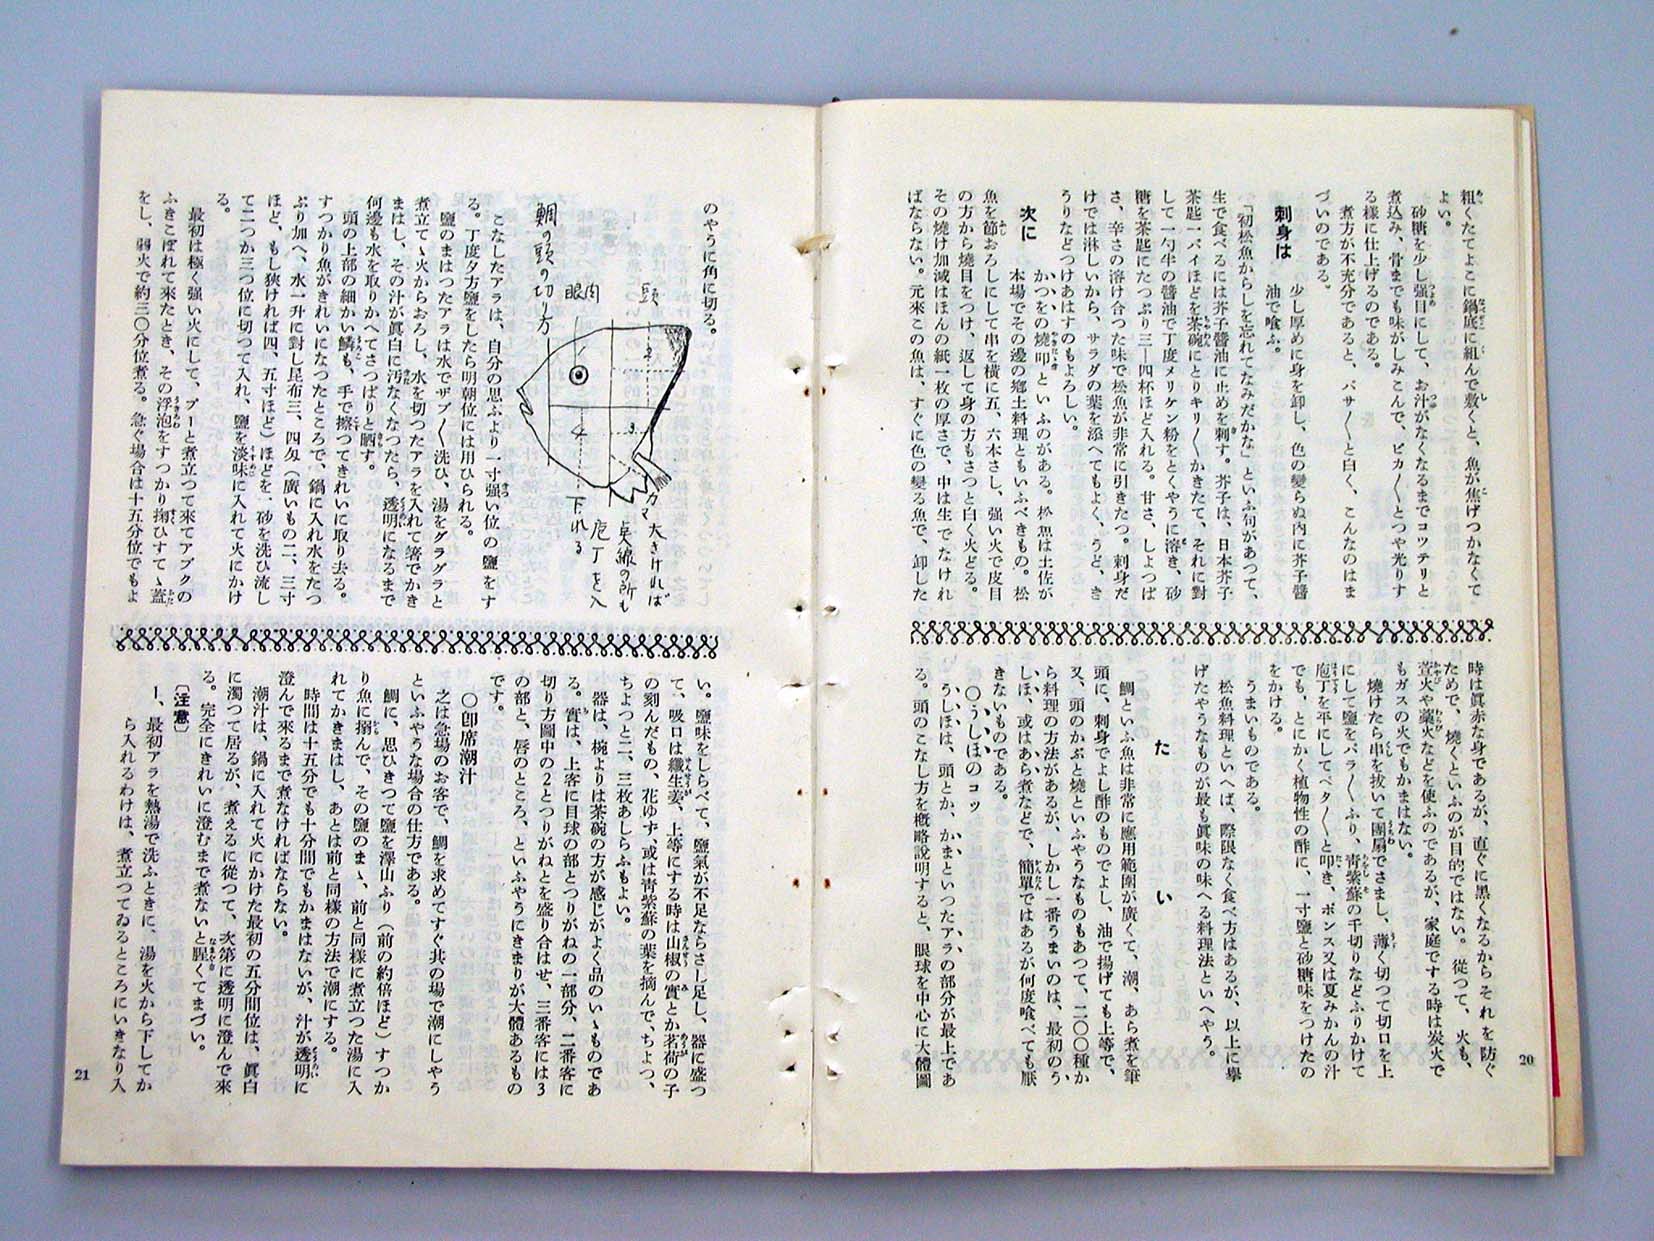 粗くたてよこに鍋底に組んで敷くと、魚が焦げつかなくて
よい。
砂糖を少し强目にして、お汁がなくなるまでコツテリと
煮込み、骨までも味がしみこんで、ピカ〳〵とつや光りす
る樣に仕上げるのである。
煮方が不充分であると、バサ〳〵と白く、こんなのはま
づいのである。
刺身は
少し厚めに身を卸し、色の變らぬ内に芥子醬
油で喰ふ。
「初松魚からしを忘れてなみだかな」といふ句があつて、
生で食べるには芥子醬油に止めを刺す。芥子は、日本芥子
茶匙一パイほどを茶碗にとりキリ〳〵かきたて、それに對
して一勺半の醬油で丁度メリケン粉をとくやうに溶き、砂
糖を茶匙にたつぷり三―四杯ほど入れる。甘さ、しよつぱ
さ、辛さの溶け合つた味で松魚が非常に引きたつ。刺身だ
けでは淋しいから、サラダの葉を添へてもよく、うど、き
うりなどつけあはすのもよろしい。
次に
かつをの燒叩といふのがある。松魚は土佐が
本場でその邊の鄕土料理ともいふべきもの。松
魚を節おろしにして串を橫に五、六本さし、强い火で皮目
の方から燒目をつけ、返して身の方もさつと白く火どる。
その燒け加減はほんの紙一枚の厚さで、中は生でなけれ
ばならない。元來この魚は、すぐに色の變る魚で、卸した
時は眞赤な身であるが、直ぐに黑くなるからそれを防ぐ
ためで、燒くといふのが目的ではない。從つて、火も、
萱火や藁火などを使ふのであるが、家庭でする時は炭火で
もガスの火でもかまはない。
燒けたら串を拔いて團扇でさまし、薄く切つて切口を上
にして鹽をパラ〳〵ふり、靑紫蘇の千切りなどふりかけて
庖丁を平にしてペタ〳〵と叩き、ポンス又は夏みかんの汁
でも、とにかく植物性の酢に、一寸鹽と砂糖味をつけたの
をかける。
うまいものである。
松魚料理といへば、際限なく食べ方はあるが、以上に擧
げたやうなものが最も眞味の味へる料理法といへやう。
たい
鯛といふ魚は非常に應用範圍が廣くて、潮、あら煮を筆
頭に、刺身でよし酢のものでよし、油で揚げても上等で、
又、頭のかぶと燒といふやうなものもあつて、二〇〇種か
ら料理の方法があるが、しかし一番うまいのは、最初のう
しほ、或はあら煮などで、簡單ではあるが何度喰べても厭
きないものである。
〇うしほのコツ
うしほは、頭とか、かまといつたアラの部分が最上であ
る。頭のこなし方を槪略說明すると、眼球を中心に大體圖
20
のやうに角に切る。
鯛の頭の切り方
眼肉
頭
1
2
3
4
カマ
大きければ
点線の所も
庖丁を入
下れる
こなしたアラは、自分の思ふより一寸强い位の鹽をす
る。丁度夕方鹽をしたら明朝位には用ひられる。
鹽のまはつたアラは水でザブ〳〵洗ひ、湯をグラグラと
煮立てゝ火からおろし、水を切つたアラを入れて箸でかき
まはし、その汁が眞白に汚なくなつたら、透明になるまで
何邊も水を取りかへてさつぱりと晒す。
頭の上部の細かい鱗も、手で擦つてきれいに取り去る。
すつかり魚がきれいになつたところで、鍋に入れ水をたつ
ぷり加へ、水一升に對し昆布三、四匁（廣いもの二、三寸
ほど、もし狹ければ四、五寸ほど）ほどを、砂を洗ひ流し
て二つか三つ位に切つて入れ、鹽を淡味に入れて火にかけ
る。
最初は極く强い火にして、プーと煮立つて來てアブクの
ふきこぼれて來たとき、その浮泡をすつかり掬ひすてゝ蓋
をし、弱火で約三〇分位煮る。急ぐ場合は十五分位でもよ
い。鹽味をしらべて、鹽氣が不足ならさし足し、器に盛つ
て、吸口は纖生姜、上等にする時は山椒の實とか茗荷の子
の刻んだもの、花ゆず、或は靑紫蘇の葉を摘んで、ちよつ、
ちよつと二、三枚あしらふもよい。
器は、椀よりは茶碗の方が感じがよく品のいゝものであ
る。實は、上客に目球の部とつりがねの一部分、二番客に
切り方圖中の2とつりがねとを盛り合はせ、三番客には3
の部と、唇のところ、といふやうにきまりが大體あるもの
です。
〇卽席潮汁
之は急場のお客で、鯛を求めてすぐ共の場で潮にしやう
といふやうな場合の仕方である。
鯛に、思ひきつて鹽を澤山ふり（前の約倍ほど）すつか
り魚に搦んで、その鹽のまゝ、前と同樣に煮立つた湯に入
れてかきまはし、あとは前と同樣の方法で潮にする。
時間は十五分でも十分間でもかまはないが、汁が透明に
澄んで來るまで煮なければならない。
潮汁は、鍋に入れて火にかけた最初の五分間位は、眞白
に濁つて居るが、煮えるに從つて、次第に透明に澄んで來
る。完全にきれいに澄むまで煮ないと腥くてまづい。
〔注意〕
1、最初アラを熱湯で洗ふときに、湯を火から下してか
ら入れるわけは、煮立つてゐるところにいきなり入
21